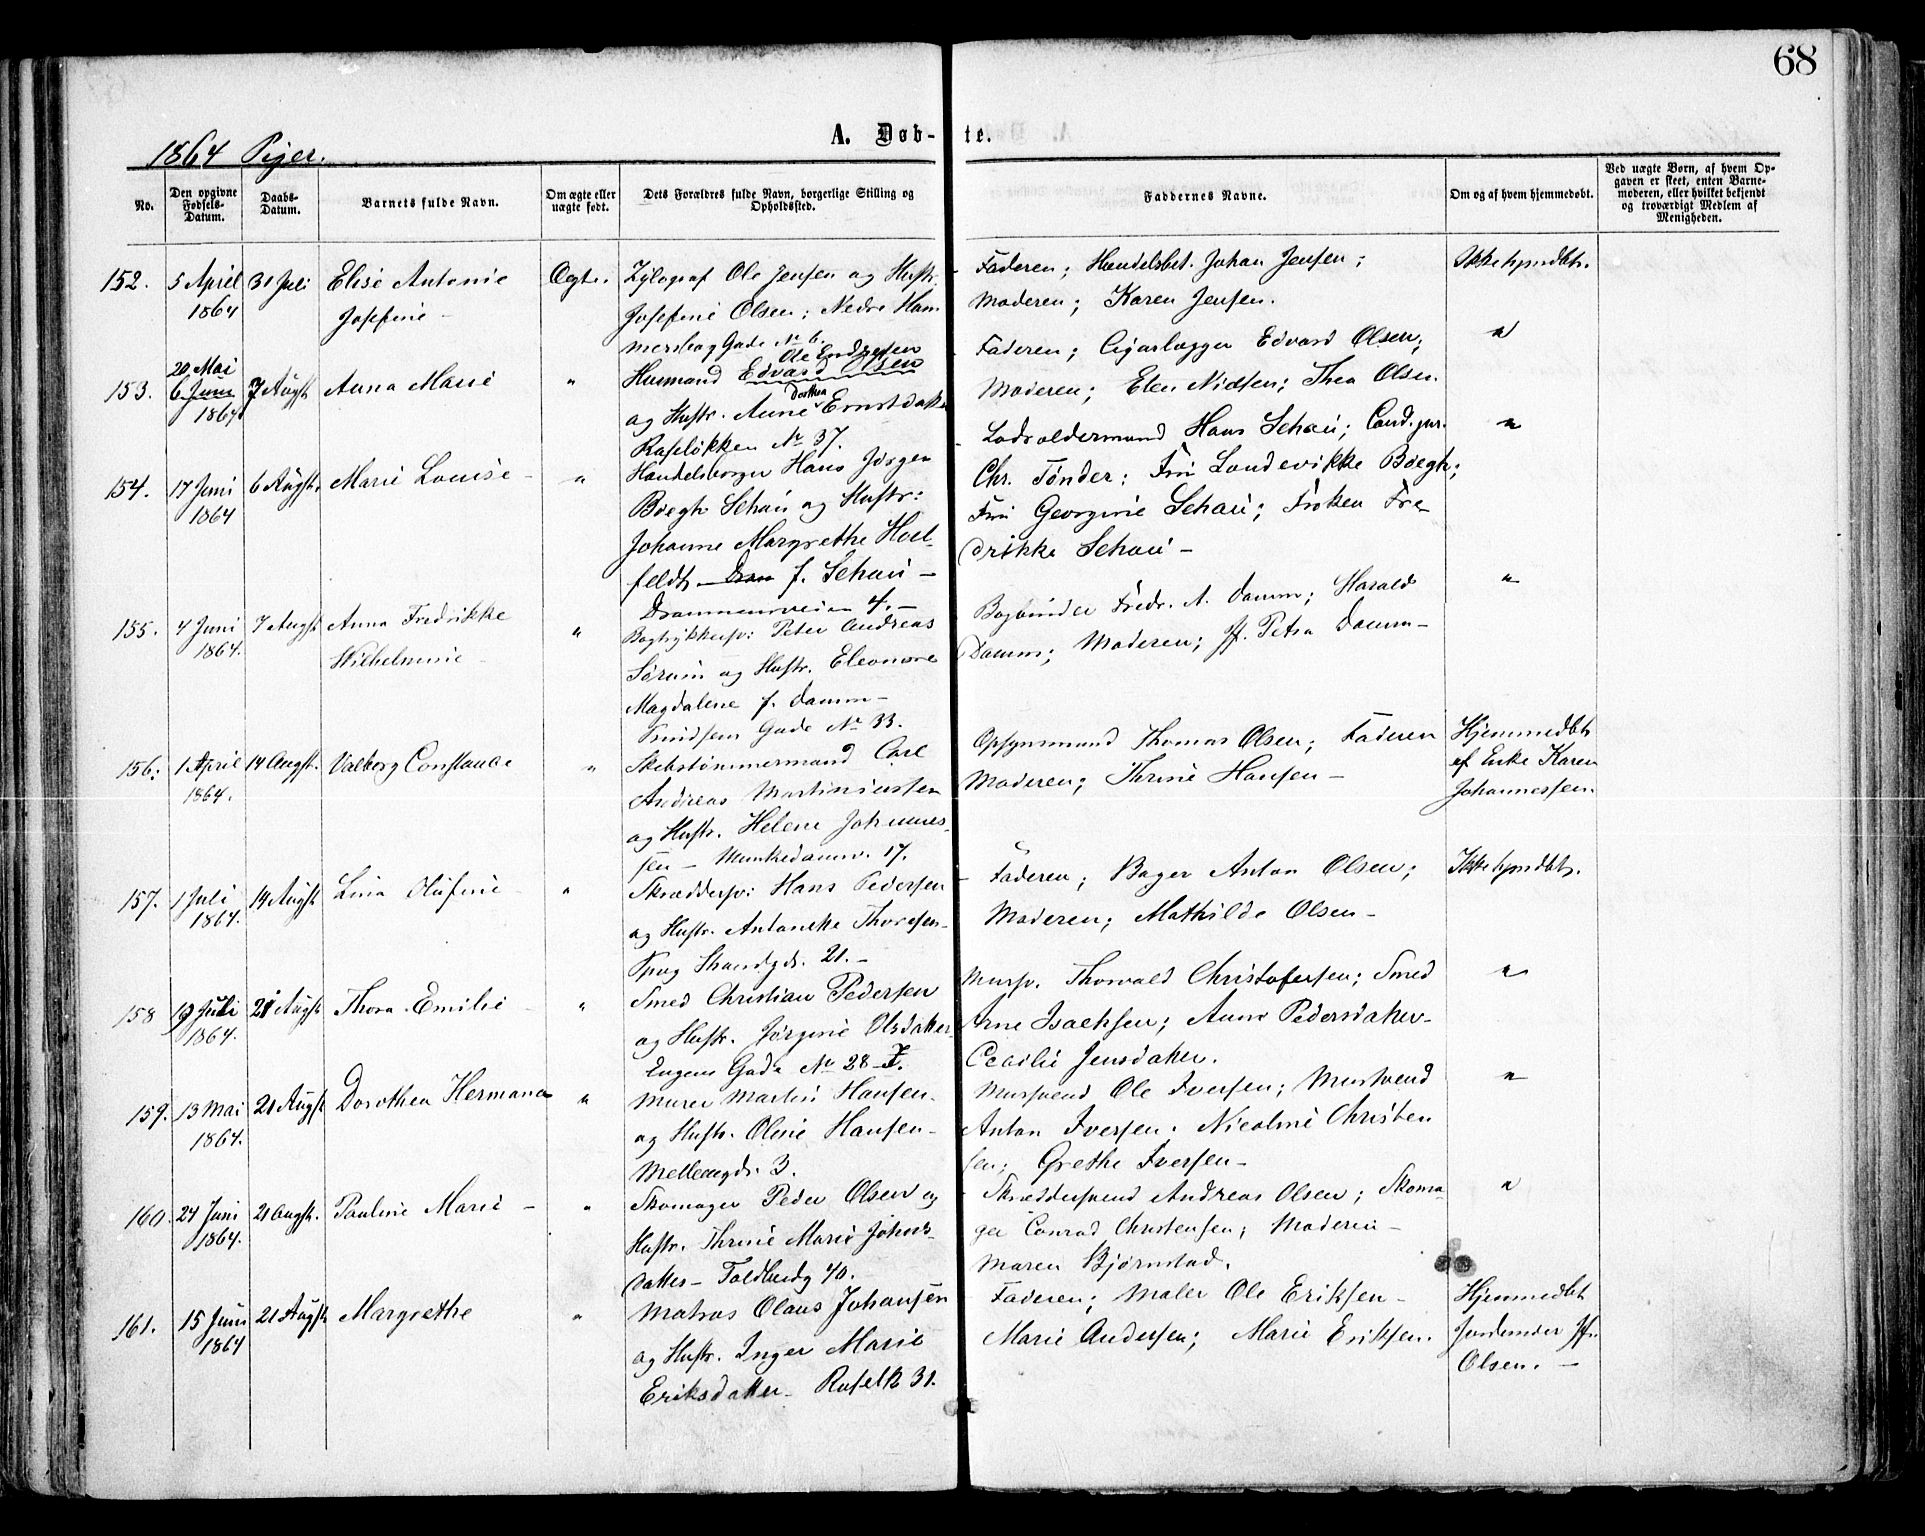 68
A. Døb- te.
1864 Piger.
No.
Den opgivne Fødsels-Datum.
Daabs-Datum.
Barnets fulde Navn.
Om ægte eller uægte født.
Dets Forældres fulde Navn, borgerlige Stilling og Opholdssted.
Faddernes Navne.
Om og af hvem hjemmedøbt.
Ved uægte Børn, af hvem Opgaven er skeet, enten Barnemoderen, eller hvilket bekjendt og troværdigt Medlem af Menigheden.
152. 5 April 31 Juli Elise Antonie Ægte. Zylograf Ole Jensen og Hustr. Faderen; Handelsbet. Johan Jensen; Ikke hjmdbt.
1864 Josefine - Josefine Olsen; Nedre Ham Moderen; Karen Jensen.
mersborg Gade No 6.
20 Mai Ole Endresen Faderen; Cigarlægger Edvard Olsen; "
153. 6 Juni 7 Augst Anna Marie " Husmand Edvard Olsen Moderen; Elen Nielsen; Thea Olsen.
1864 og Hustr. Anne Dorthea Ernstdatter
Ruseløkken No 37. Lodsoldermand Hans Schau; Cand. jur. "
154. 17 Juni 6 Augst. Marie Louise - " Handelsborger Hans Jørgen Chr. Tønder; Fru Bøegh;
1864 Bøegh Schau og Hustr: Fru Georgine Schau; Frøken Fre
Johanne Margrethe Hoel- drikke Schau -
feldt f. Schau -
Drammensveien 4. -
155. 4 Juni 7 Augst Anna Fredrikke " Bogtrykkersv: Peter Andreas Bogbinder Fredr. A. Damm; Harald "
1864. Wilhelmine - Sørum og Hustr. Eleonore Damm; Moderen; Jf. Petra Damm -
Magdalene f. Damm -
Knudsens Gade No 33.
156. 1 April 14 Augst. Valborg Constance " Skibstømmermand Carl Opsynsmand Thomas Olsen; Faderen Hjemmedbt
1864. Andreas Martiniussen Moderen; Thrine Hansen - af Enke Karen
og Hustr. Helene Johannes- Johannessen.
sen - Munkedamsv. 17.
157. 1 Juli 14 Augst Lina Olufine - " Skræddersv: Hans Pedersen Faderen; Bager Anton Olsen; Ikke hjmdbt.
1864. og Hustr. Antonette Thoresen - Moderen; Mathilde Olsen -
Strandgd. 21. -
158 19 Juli 21 Augst Thora Emilie - " Smed Christian Pedersen Mursv. Thorvald Christofersen; Smed "
1864. og Hustr. Jørgine Olsdatter Arne Isachsen; Anne Pedersdatter -
Engens Gade No 28 I. Cecilie Jensdatter.
159. 13 Mai 21 Augst Dorothea Hermana " Murer Martin Hansen - Mursvend Ole Iversen; Mursvend "
1864. og Hustr. Oline Hansen - Anton Iversen. Nicoline Christen
Mellemgd. 3. sen; Grethe Iversen -
160. 24 Juni 21 Augst. Pauline Marie - " Skomager Peder Olsen og Skræddersvend Andreas Olsen; Skoma "
1864. Hustr. Thrine Marie Johns- ger Conrad Christensen; Moderen -
datter - Toldbodg 40. Maren Bjørnstad.
161. 15 Juni 21 Augst Margrethe " Matros Olaus Johansen Faderen; Maler Ole Eriksen - Hjemmedbt
1864 og Hustr. Inger Marie Marie Andersen; Marie Eriksen. Jordmoder Jfr
Eriksdatter - Ruselk 31. Olsen. -